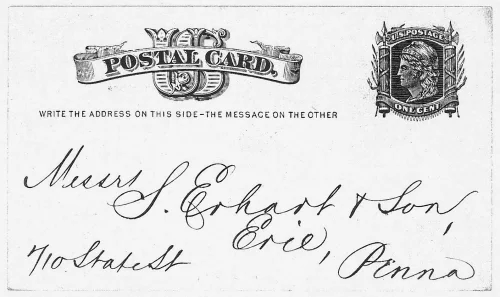 US
POSTAL CARD.
U.S. POSTAGE
ONE CENT
WRITE THE ADDRESS ON THIS SIDE-THE MESSAGE ON THE OTHER
Messrs S. Erhart & Son,
Erie,
710 State St Penna